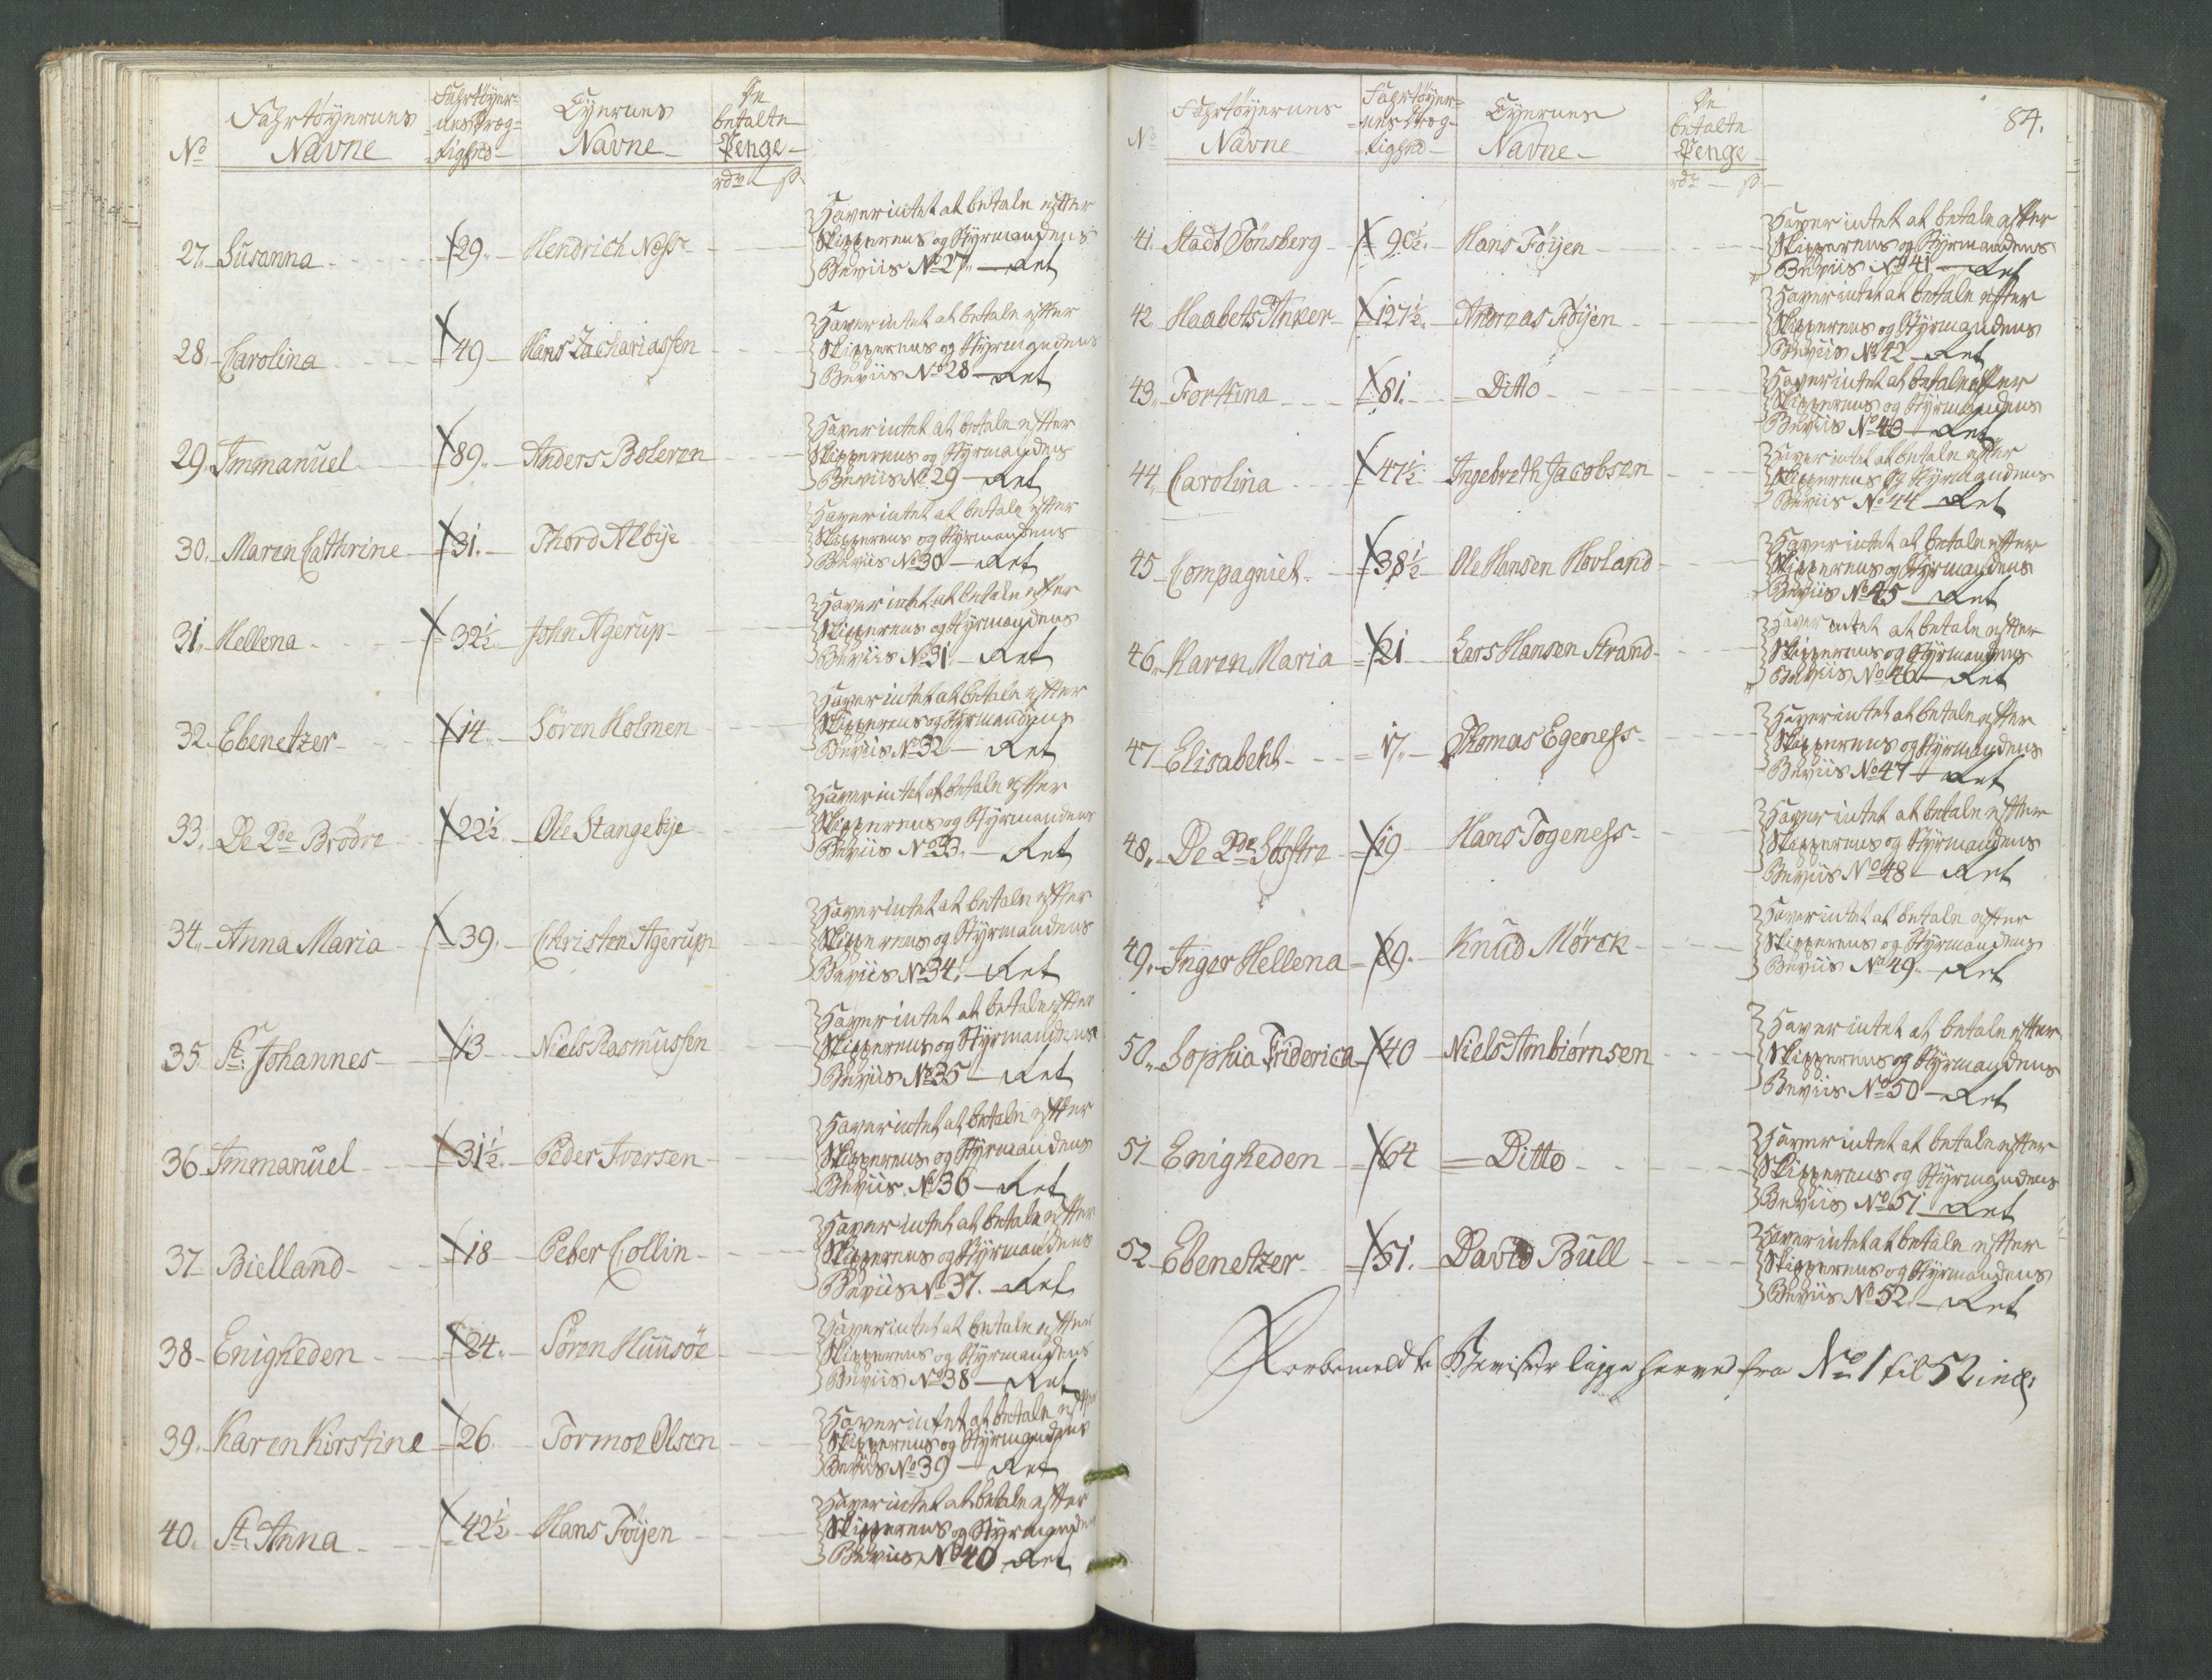 No
Fahrtöyernes
Navne
Fahrtöyer-
nes Dræg-
tighed
Eyernes
Navne
De
betalte
Penge
rdr ß
27. Susanna 29. Hendrich Ness
Haver intet at betale efter
Skipperens og Styrmandens
Beviis No 27. Ret
28. Carolina 49 Hans Zachariassen
Haver intet at betale efter
Skipperens og Styrmandens
Beviis No 28 Ret
29. Immanuel 89. Anders Boleren
Haver intet at betale efter
Skipperens og Styrmandens
Beviis No 29 Ret
30. Maren Cathrine 31. Thord Albye
Haver intet at betale efter
Skipperens og Styrmandens
Beviis No 30 Ret
31. Hellena 32½ John Agerup
Haver intet at betale efter
Skipperens og Styrmandens
Beviis No 31. Ret
32. Ebenetzer 14. Sören Holmen
Haver intet at betale efter
Skipperens og Styrmandens
Beviis No 32 Ret
33. De 2de Brödre 22½ Ole Stangebye
Haver intet at betale efter
Skipperens og Styrmandens
Beviis No 33. Ret
34. Anna Maria 39. Christen Agerup
Haver intet at betale efter
Skipperens og Styrmandens
Beviis No 34. Ret
35. St: Johannes 13 Niels Rasmussen
Haver intet at betale efter
Skipperens og Styrmandens
Beviis No 35 Ret
36. Immanuel 31½ Peder Iversen
Haver intet at betale efter
Skipperens og Styrmandens
Beviis No 36 Ret
37 Bielland 18 Peter Collin
Haver intet at betale efter
Skipperens og Styrmandens
Beviis No 37. Ret
38 Enigheden 24. Sören Huusöe
Haver intet at betale efter
Skipperens og Styrmandens
Beviis No 38 Ret
39. Karen Kirstine 26. Tormoe Olsen
Haver intet at betale efter
Skipperens og Styrmandens
Beviis No 39 Ret
40. St: Anna 42½ Hans Föyen
Haver intet at betale efter
Skipperens og Styrmanden
Beviis No 40 Ret
84.
No
Fahrtöyernes
Navne
Fahrtöyer-
nes Dræg-
tighed
Eyernes
Navne
De
betalte
Penge
rdr ß
41. Stadt Tönsberg 90½. Hans Föyen
Haver intet at betale efter
Skipperens og Styrmandens
Beviis No 41 Ret
42. Haabets Anker 127½. Andreas Föyen
Haver intet at betale efter
Skipperens og Styrmandens
Beviis No 42 Ret
43. Fortuna 81. Ditto
Haver intet at betale efter
Skipperens og Styrmandens
Beviis No 43 Ret
44. Carolina 47½ Ingebreth Jacobsen
Haver intet at betale efter
Skipperens og Styrmandens
Beviis No 44 Ret
45 Compagniet 38½ Ole Hansen Hovland
Haver intet at betale efter
Skipperens og Styrmandens
Beviis No 45 Ret
46. Karen Maria 21 Lars Hansen Strand
Haver intet at betale efter
Skipperens og Styrmandens
Beviis No 46 Ret
47 Elisabeht 17. Thomas Egeness
Haver intet at betale efter
Skipperens og Styrmandens
Beviis No 47 Ret
48. De 2de Söstre 19 Hans Togeness
Haver intet at betale efter
Skipperens og Styrmandens
Beviis No 48 Ret
49. Inger Hellena 29. Knud Mörck
Haver intet at betale efter
Skipperens og Styrmandens
Beviis No 49. Ret
50. Sophia Friderica 40 Niels Ambiørnsen
Haver intet at betale efter
Skipperens og Styrmandens
Beviis No 50 Ret
51 Enigheden 64 Ditto
Haver intet at betale efter
Skipperens og Styrmandens
Beviis No 51 Ret
52 Ebenetzer 51. David Bull
Haver intet at betale efter
Skipperens og Styrmandens
Beviis No 52. Ret
Forbemeldte Beviser ligge herved fra No 1 til 52 incl: